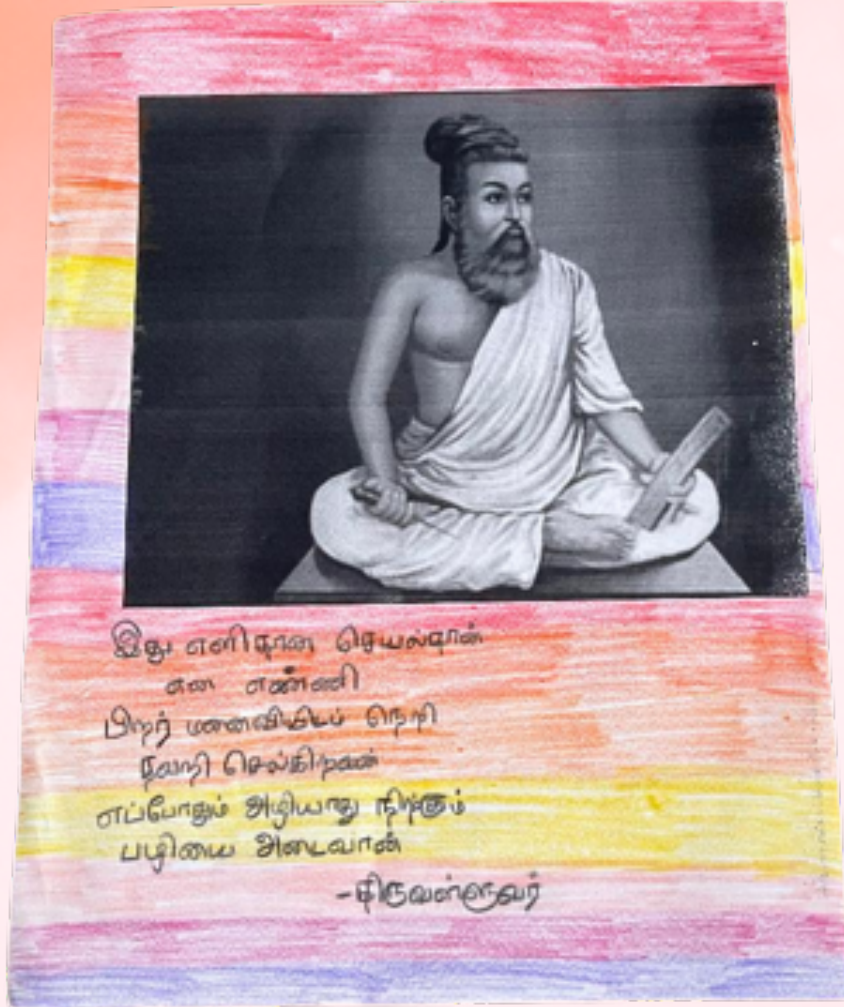 இது எளிதான செயல்தான்
என எண்ணி
பிறர் மனைவியிடம் நெறி
தவறி செல்கிறவன்
எப்போதும் அழியாது நிற்கும்
பழியை அடைவான்
-திருவள்ளுவர்